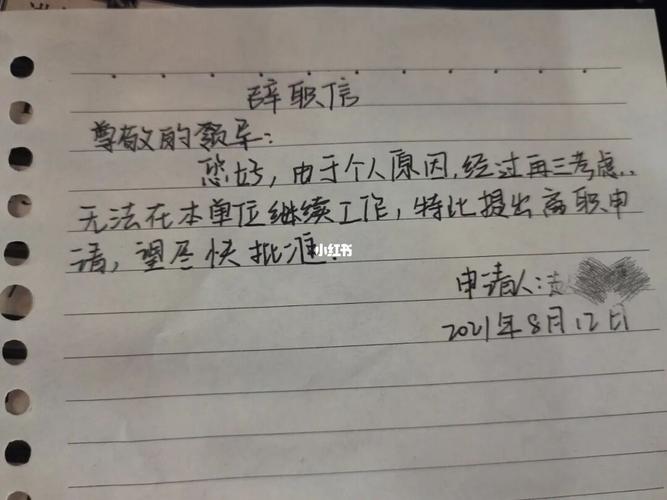 辞职信
尊敬的领导：
您好，由于个人原因，经过再三考虑，
无法在本单位继续工作，特此提出离职申
请，望尽快批准。
小红书
申请人：
2021年8月12日